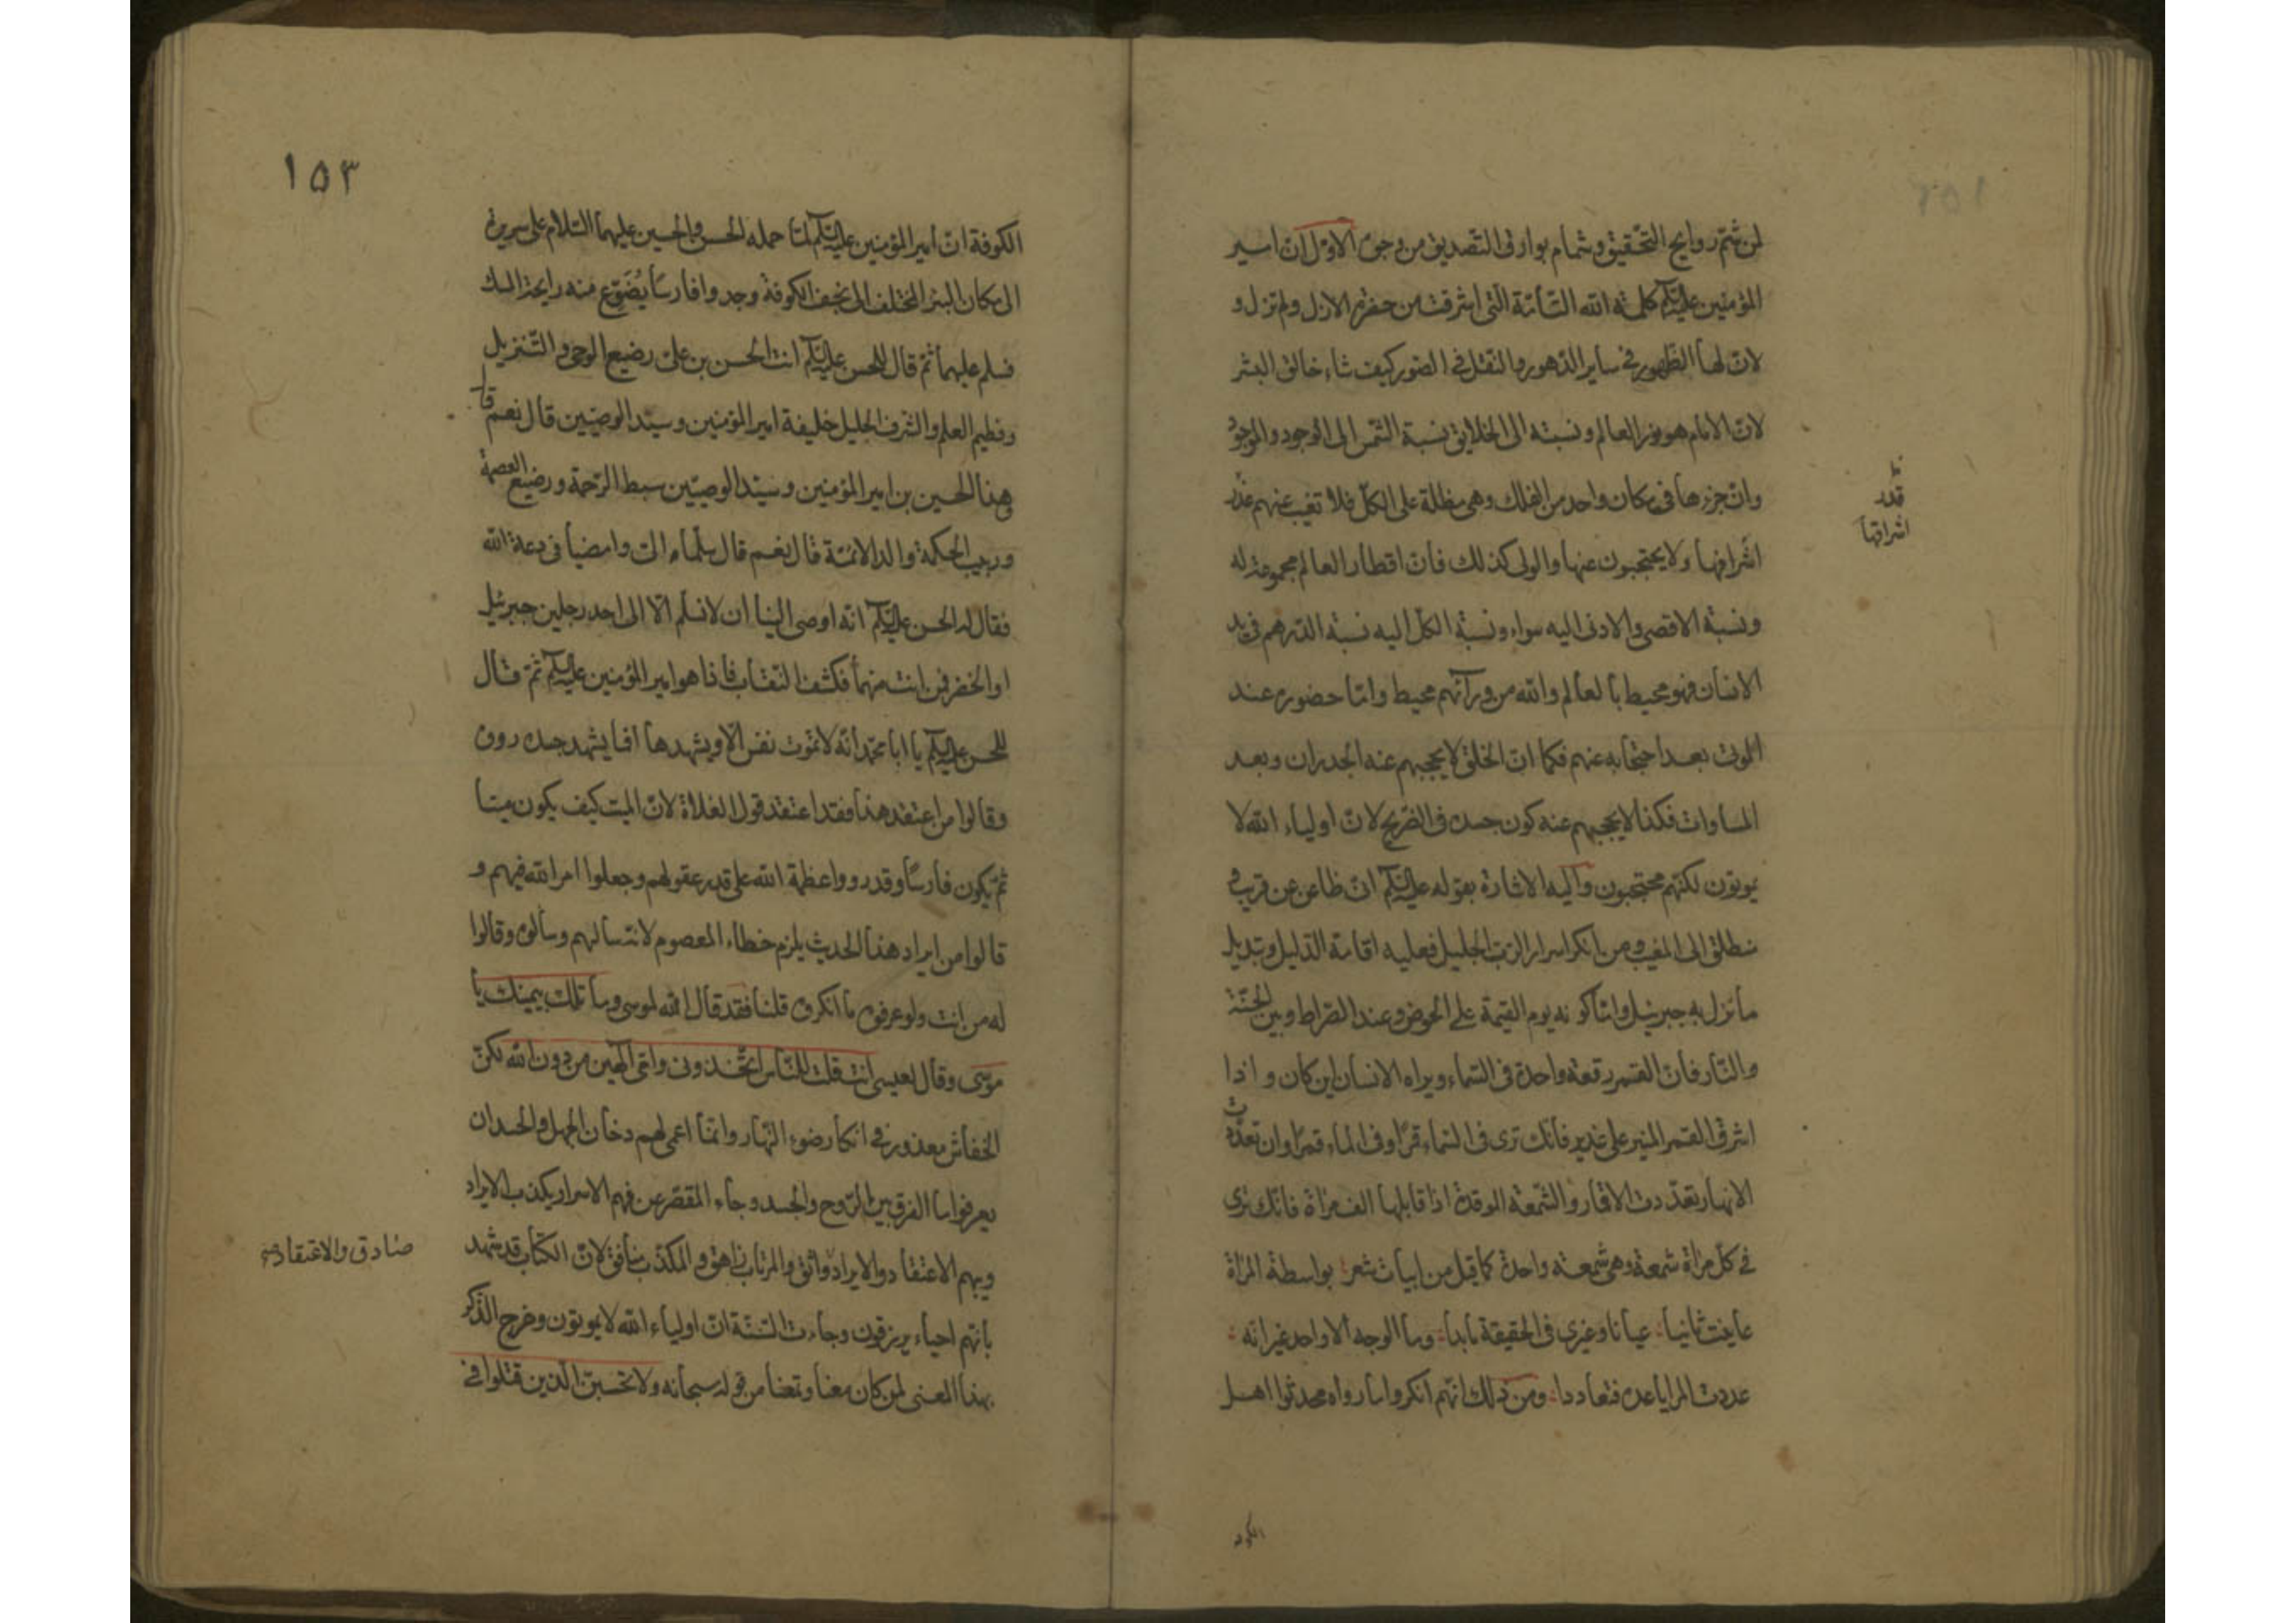 لمن شمّ روايح التحقيق وشمام بوارق التصديق من وجوه الاوّل انّ امير
المؤمنين عليه السلم كلمة الله التامّة التى اشرقت من حضرة الازل ولم تزل و
لانّ لها الظهور فى ساير الدهور والتنقل فى الصور كيف شاء خالق البشر
لانّ الامام هو نور العالم ونسبته الى الخلايق نسبة الشمس الى الوجود والموجود
وانّ جزءها فى مكان واحد من الفلك وهى مظلة على الكلّ فلا تغيب عنهم عند
اشراقها ولا يحتجبون عنها والولى كذلك فانّ اقطار العالم مجموعة له
ونسبة الاقصى والادنى اليه سواء ونسبة الكلّ اليه نسبة الدّرهم فى يد
الانسان فهو محيط بالعالم والله من ورآئهم محيط وامّا حضوره عند
الموت بعد احتجابه عنهم فكما انّ الخلق لا يحجبهم عنه الجدران وبعد
المساوات فكذا لا يحجبهم عنه كون جسده فى الضريح لانّ اولياء الله لا
يموتون لكنّهم محتجبون واليه الاشارة بقوله عليه السلم انّى ظاعن عن قريب و
منطلق الى المغيب ومن انكر اسرار الربّ الجليل فعليه اقامة الدّليل وتبديل
ما نزل به جبرئيل وامّا كونه يوم القيمة على الحوض وعند الصّراط وبين الجنّة
والنّار فانّ القمر رقعة واحدة فى السّماء ويراه الانسان اين كان واذا
اشرق القمر المنير على غدير فانّك ترى فى السّماء قمرًا وفى الماء قمرًا وان تعدّدت
الانهار تعدّدت الاقمار والشّمعة الموقدة اذا قابلها الف مرآة فانّك ترى
فى كلّ مرآة شمعة وهى شمعة واحدة كما قيل من ابيات شعر بواسطة المرآة
عاينت ثانيا عيانا وغيرى فى الحقيقة ما بدا وما الوجه الا واحد غير انّه
عددت المرايا عده فتعاددا ومن ذلك انّهم انكروا ما رواه محدثوا اهل
قدر
اشراقها
١٥٣
الكوفة انّ امير المؤمنين عليه السلم لمّا حمله الحسن والحسين عليهما السّلام على سريره
الى مكان البئر المختلف الى نجف الكوفة وجدوا فارسًا يُضَوّع منه رايحة المسك
فسلم عليهما ثمّ قال للحسن عليه السلم انت الحسن بن علىّ رضيع الوحى والتّنزيل
وفطيم العلم والشرف الجليل خليفة امير المؤمنين وسيّد الوصيّين قال نعم قال
هذا الحسين بن امير المؤمنين وسيّد الوصيّين سبط الرّحمة ورضيع العصمة
وربيب الحكمة والد الائمّة قال نعم قال سلّماه الىّ وامضيا فى دعة الله
فقال له الحسن عليه السلم انّه اوصى الينا ان لا نسلم الّا الى احد رجلين جبرئيل
او الخضر فمن انت منهما فكشف النّقاب فاذا هو امير المؤمنين عليه السلم ثمّ قال
للحسن عليه السلم يا ابا محمّد انّه لا تموت نفس الّا ويشهدها افما يشهد جسده روى
وقالوا من اعتقد هذا فقد اعتقد قول الغلاة لانّ الميت كيف يكون ميتا
ثمّ يكون فارسًا وقدروا عظمة الله على قدر عقولهم وجعلوا امر الله فيهم و
قالوا من ايراد هذا الحديث يلزم خطاء المعصوم لانّه سالهم وسألوه وقالوا
له من انت ولو عرفوه ما انكروه قلنا فقد قال الله لموسى وما تلك بيمينك يا
موسى وقال لعيسى أنت قلت للنّاس اتّخذونى وامّى الٓهين من دون الله لكنّ
الخفاش معذور فى انكار ضوء النّهار وانّما اعمى لهم دخان الجهل والحسد ان
يعرفوا ما الفرق بين الرّوح والجسد وجاء المقصّر عن فهم الاسرار يكذب الايراد
وبهم الاعتقاد والايراد واثق والمرتاب زاهق والمكذّب منافق لانّ الكتاب قد شهد
بانّهم احياء يرزقون وجاءت السّنّة انّ اولياء الله لا يموتون وخرج الذّكر
بهذا المعنى لمن كان معنا وتمعّنا من قوله سبحانه ولا تحسبنّ الّذين قتلوا فى
صادق والاعتقاد